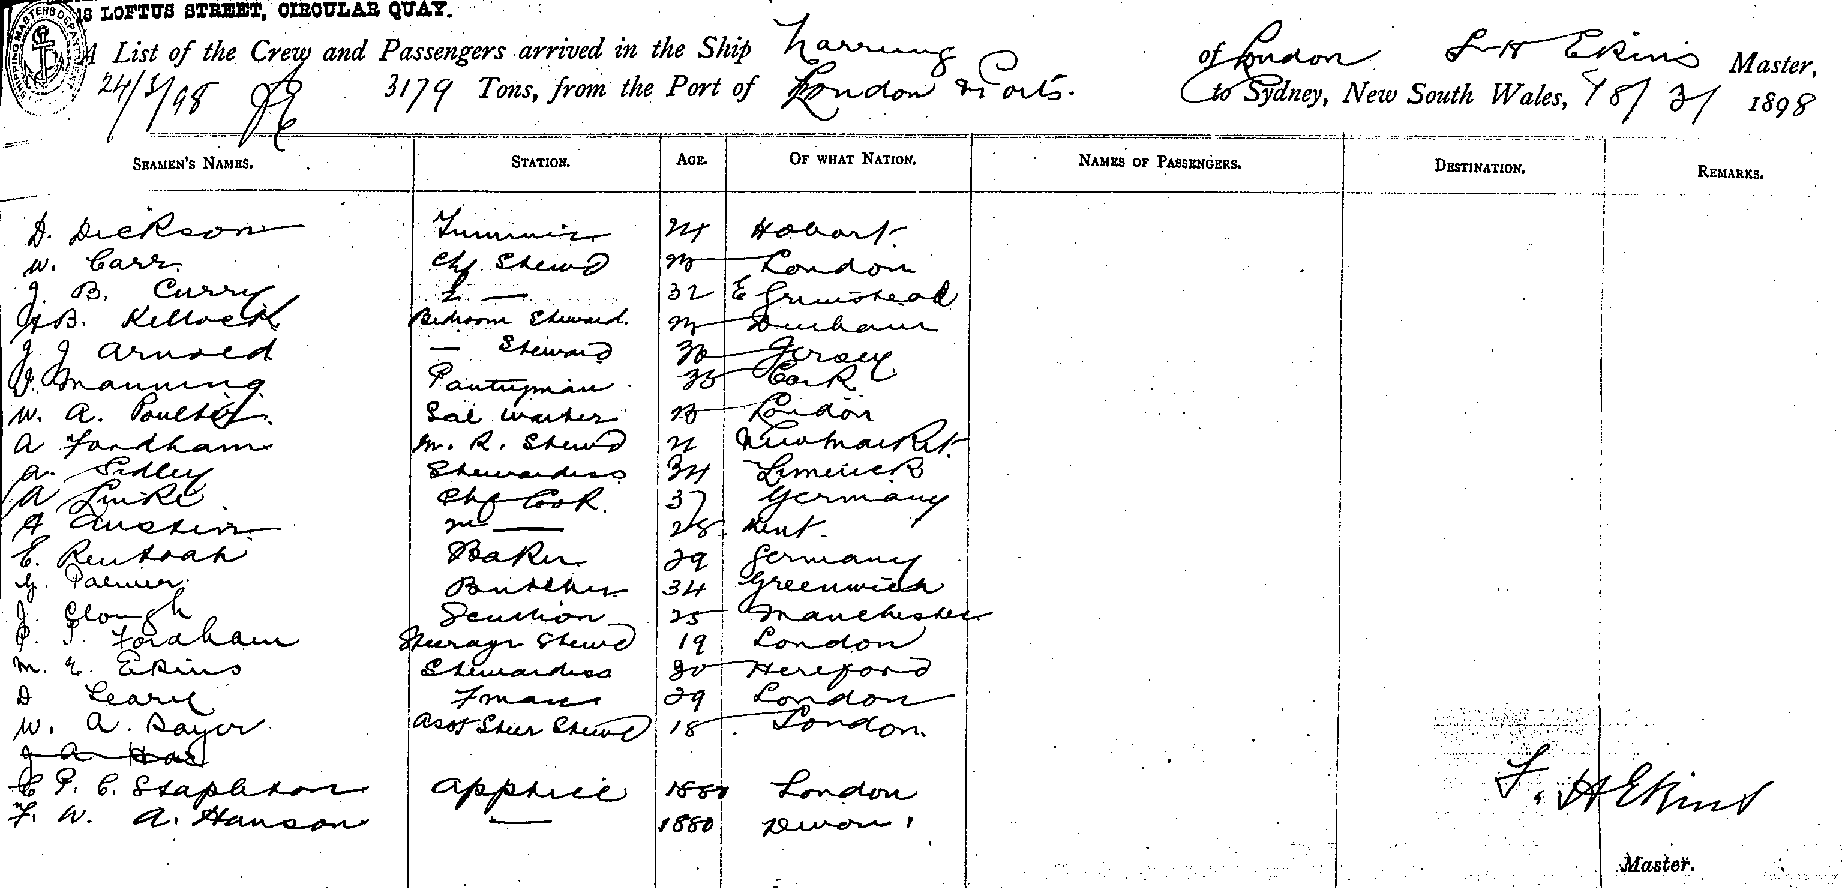 LOFTUS STREET, CIRCULAR QUAY.
A List of the Crew and Passengers arrived in the Ship Narrung of London F H Ekins Master,
24/3/98 3179 Tons, from the Port of London & Ports. to Sydney, New South Wales, 18/3/ 1898
SEAMEN'S NAMES. STATION. AGE. OF WHAT NATION. NAMES OF PASSENGERS. DESTINATION. REMARKS.
D. Dickson Trimmer 24 Hobart.
W. Carr. Chf. Stewd London
J. B. Curry 2 — 32 E Grinstead
B. Kellock Bedroom Steward. Durham
J J Arnold — Steward Jersey
Manning Pantryman Cork
W. A. Poulter. Sal Waiter London
A Fordham M. R. Stewd 21 Newmarket.
A. Sidley Stewardess 34 Limerick
A Linke Chf Cook. 37 Germany
A Austin — 28. Kent.
E. Baker 29 Germany
G. Palmer Butcher 34 Greenwich
J. Clough Scullion 25 Manchester
P. T. Fordham Steerage Stewd 19 London
M. E. Ekins Stewardess 30 Hereford
D Leary Fman 29 London
W. A. Sayer Asst Steer Stewd 18. London.
J A
C P. C. Stapleton Apptice 1880 London F. H Ekins
F. W. A. Hanson — 1880 Devon.
Master.